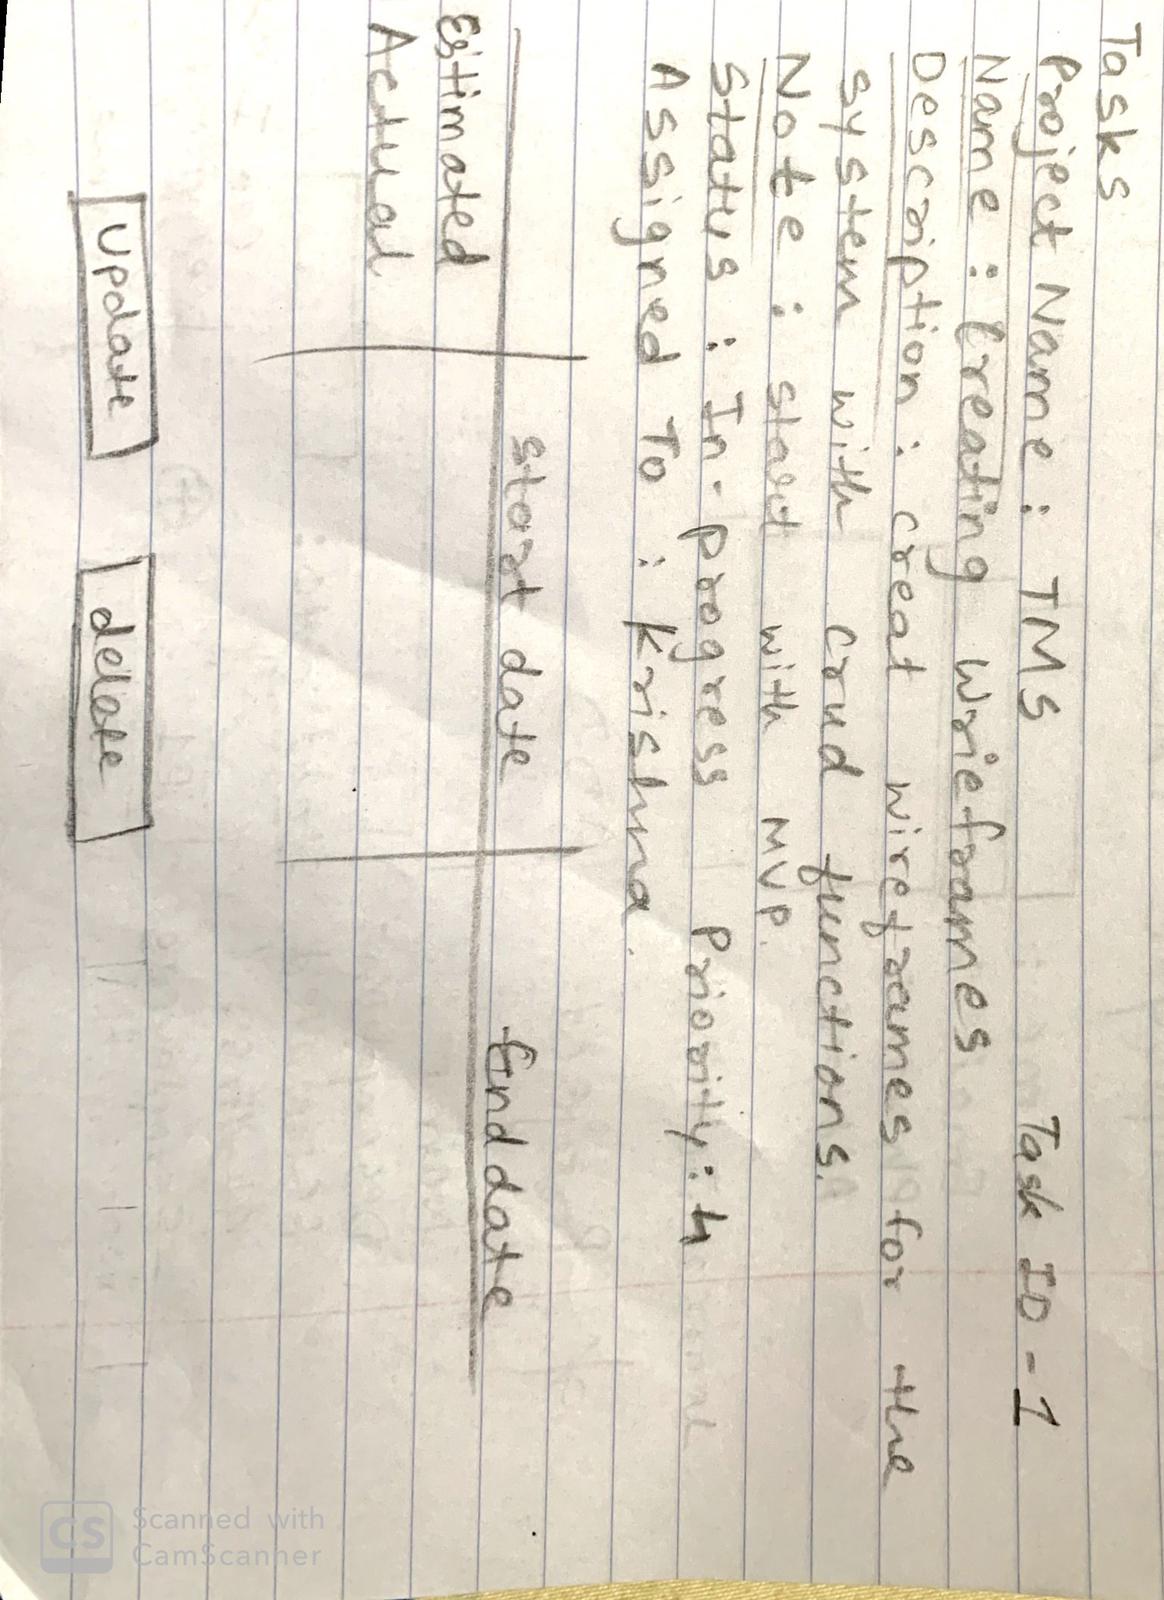 Tasks
Project Name : TMS Task ID - 1
Name : Creating Wrieframes
Description : creat wireframes for the
system with crud functions.
Note : start with MVP.
Status : In-progress Priority : 4
Assigned To : Krishna.
start date End date
Estimated
Actual
Update delete
CS Scanned with
CamScanner